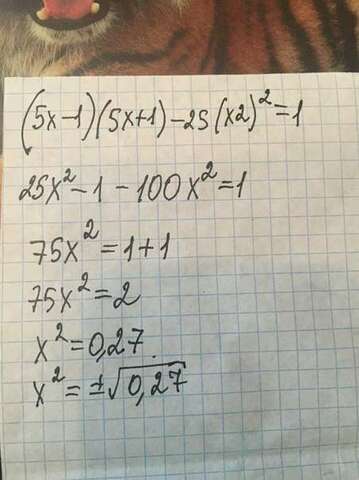 (5x-1)(5x+1)-25(x2)²=1
25x²-1-100x²=1
75x²=1+1
75x²=2
x²=0,27
x²=±√0,27